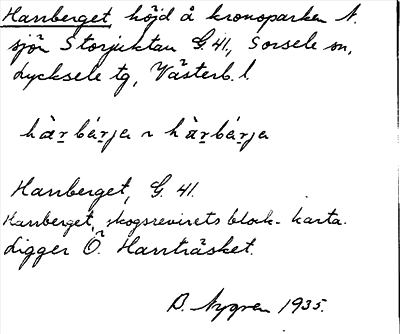 Harrberget höjd å kronoparken N.
sjön Storjuktan G. 41, Sorsele sn,
Lycksele tg, Västerb. l.
hàr̲bær̲ja ~ hàr̲bár̲ja
Harrberget, G. 41.
Harrberget, skogsrevirets block-karta.
Ligger Ö. Harrträsket.
B. Nygren 1935.